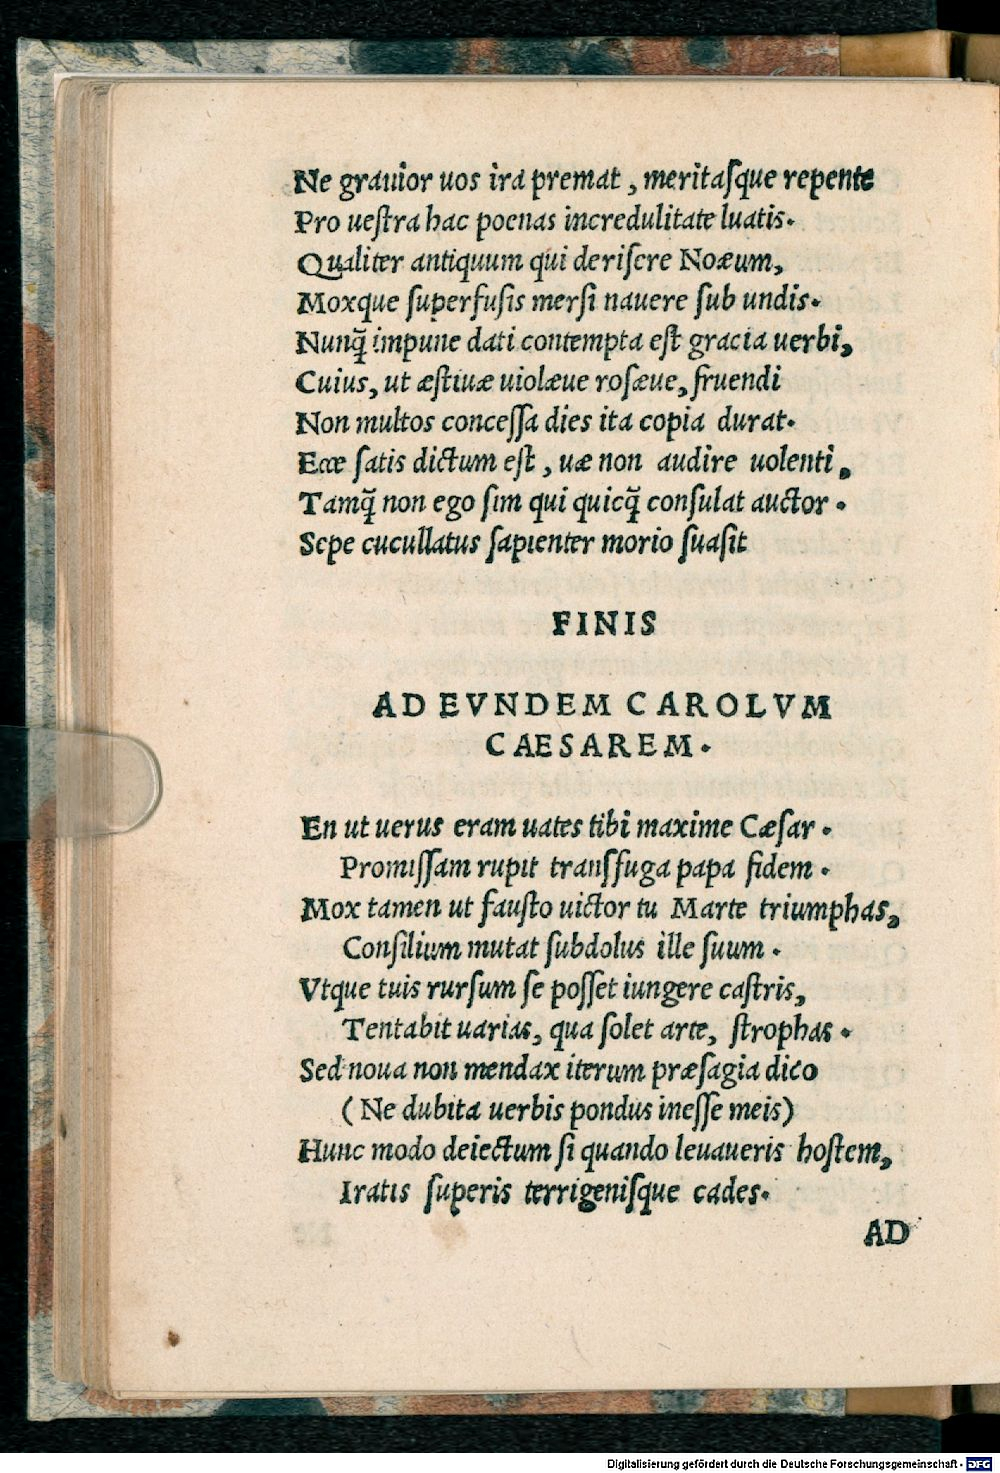 Ne grauior uos ira premat, meritasque repente
Pro uestra hac poenas incredulitate luatis.
Qualiter antiquum qui derisere Noæum,
Moxque superfusis mersi nauere sub undis.
Nunq̃ impune dati contempta est gracia uerbi,
Cuius, ut æstiuæ uiolæue rosæue, fruendi
Non multos concessa dies ita copia durat.
Ecce satis dictum est, uæ non audire uolenti,
Tamq̃ non ego sim qui quicq̃ consulat auctor.
Sepe cucullatus sapienter morio suasit
FINIS
AD EVNDEM CAROLVM
CAESAREM.
En ut uerus eram uates tibi maxime Cæsar.
Promissam rupit transfuga papa fidem.
Mox tamen ut fausto uictor tu Marte triumphas,
Consilium mutat subdolus ille suum.
Vtque tuis rursum se posset iungere castris,
Tentabit uarias, qua solet arte, strophas.
Sed noua non mendax iterum præsagia dico
(Ne dubita uerbis pondus inesse meis)
Hunc modo deiectum si quando leuaueris hostem,
Iratis superis terrigenisque cades.
AD
Digitalisierung gefördert durch die Deutsche Forschungsgemeinschaft - DFG